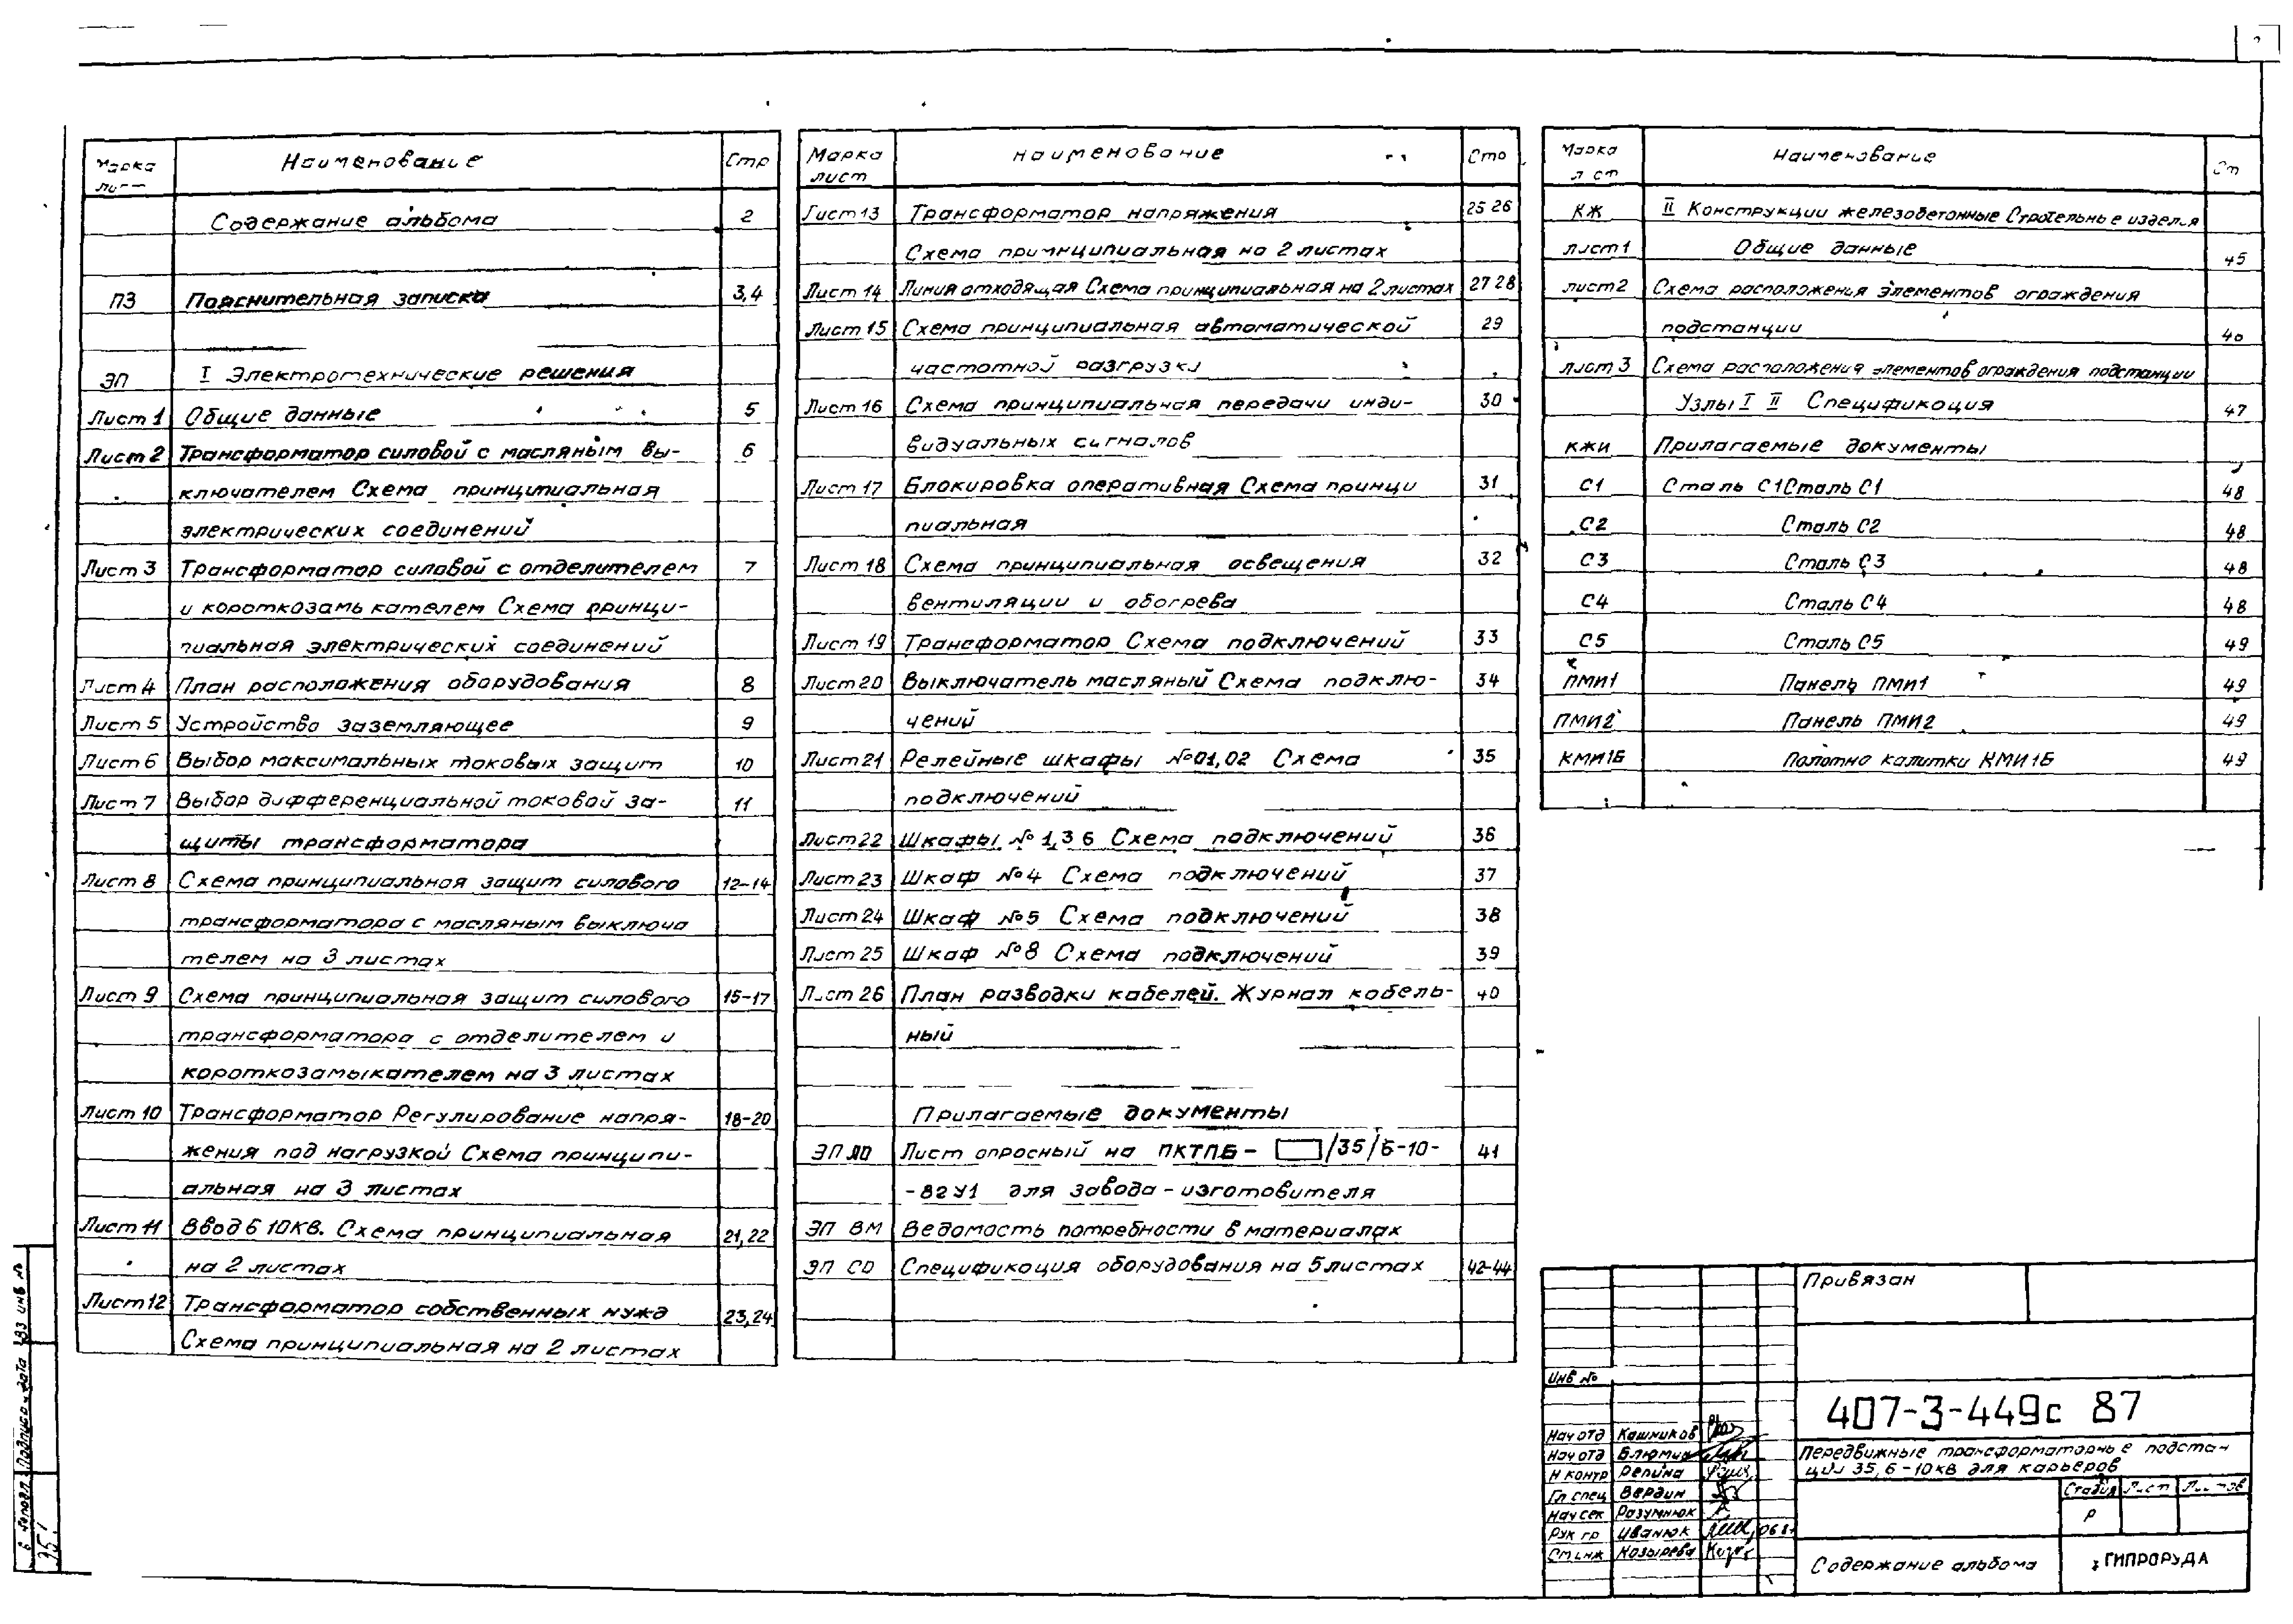 Марка лист Наименование Стр
Содержание альбома 2
ПЗ Пояснительная записка 3,4
ЭП I Электротехнические решения
Лист 1 Общие данные 5
Лист 2 Трансформатор силовой с масляным вы- 6
ключателем Схема принципиальная
электрических соединений
Лист 3 Трансформатор силовой с отделителем 7
и короткозамыкателем Схема принци-
пиальная электрических соединений
Лист 4 План расположения оборудования 8
Лист 5 Устройство заземляющее 9
Лист 6 Выбор максимальных токовых защит 10
Лист 7 Выбор дифференциальной токовой за- 11
щиты трансформатора
Лист 8 Схема принципиальная защит силового 12-14
трансформатора с масляным выключа
телем на 3 листах
Лист 9 Схема принципиальная защит силового 15-17
трансформатора с отделителем и
короткозамыкателем на 3 листах
Лист 10 Трансформатор Регулирование напря- 18-20
жения под нагрузкой Схема принципи-
альная на 3 листах
Лист 11 Ввод 6 10кВ. Схема принципиальная 21,22
на 2 листах
Лист 12 Трансформатор собственных нужд 23,24
Схема принципиальная на 2 листах
Марка лист Наименование Стр
Лист 13 Трансформатор напряжения 25 26
Схема принципиальная на 2 листах
Лист 14 Линия отходящая Схема принципиальная на 2 листах 27 28
Лист 15 Схема принципиальная автоматической 29
частотной разгрузки
Лист 16 Схема принципиальная передачи инди- 30
видуальных сигналов
Лист 17 Блокировка оперативная Схема принци 31
пиальная
Лист 18 Схема принципиальная освещения 32
вентиляции и обогрева
Лист 19 Трансформатор Схема подключений 33
Лист 20 Выключатель масляный Схема подклю- 34
чений
Лист 21 Релейные шкафы №01,02 Схема 35
подключений
Лист 22 Шкафы № 1,3 6 Схема подключений 36
Лист 23 Шкаф №4 Схема подключений 37
Лист 24 Шкаф №5 Схема подключений 38
Лист 25 Шкаф №8 Схема подключений 39
Лист 26 План разводки кабелей. Журнал кабель- 40
ный
Прилагаемые документы
ЭП ЛО Лист опросный на ПКТПБ- /35/6-10- 41
-82У1 для завода-изготовителя
ЭП ВМ Ведомость потребности в материалах
ЭП СО Спецификация оборудования на 5 листах 42-44
Марка лист Наименование Ст
КЖ II Конструкции железобетонные Строительные изделия
лист 1 Общие данные 45
лист 2 Схема расположения элементов ограждения
подстанции
лист 3 Схема расположения элементов ограждения подстанции
Узлы I II Спецификация 47
КЖИ Прилагаемые документы
С1 Сталь С1 Сталь С1 48
С2 Сталь С2 48
С3 Сталь С3 48
С4 Сталь С4 48
С5 Сталь С5 49
ПМИ1 Панель ПМИ1 49
ПМИ2 Панель ПМИ2 49
КМИ1Б Полотно калитки КМИ1Б 49
Привязан
Инв №
407-3-449с 87
Нач отд Кашников
Нач отд Блюмин
Н контр Репина
Гл спец Вердин
Нач сек Разумнюк
Рук гр Иванюк
Ст инж Козырева
Передвижные трансформаторные подстан
ции 35, 6-10кВ для карьеров
Стадия Лист Листов
Р
Содержание альбома
ГИПРОРУДА
подл Подпись и дата Вз инв №